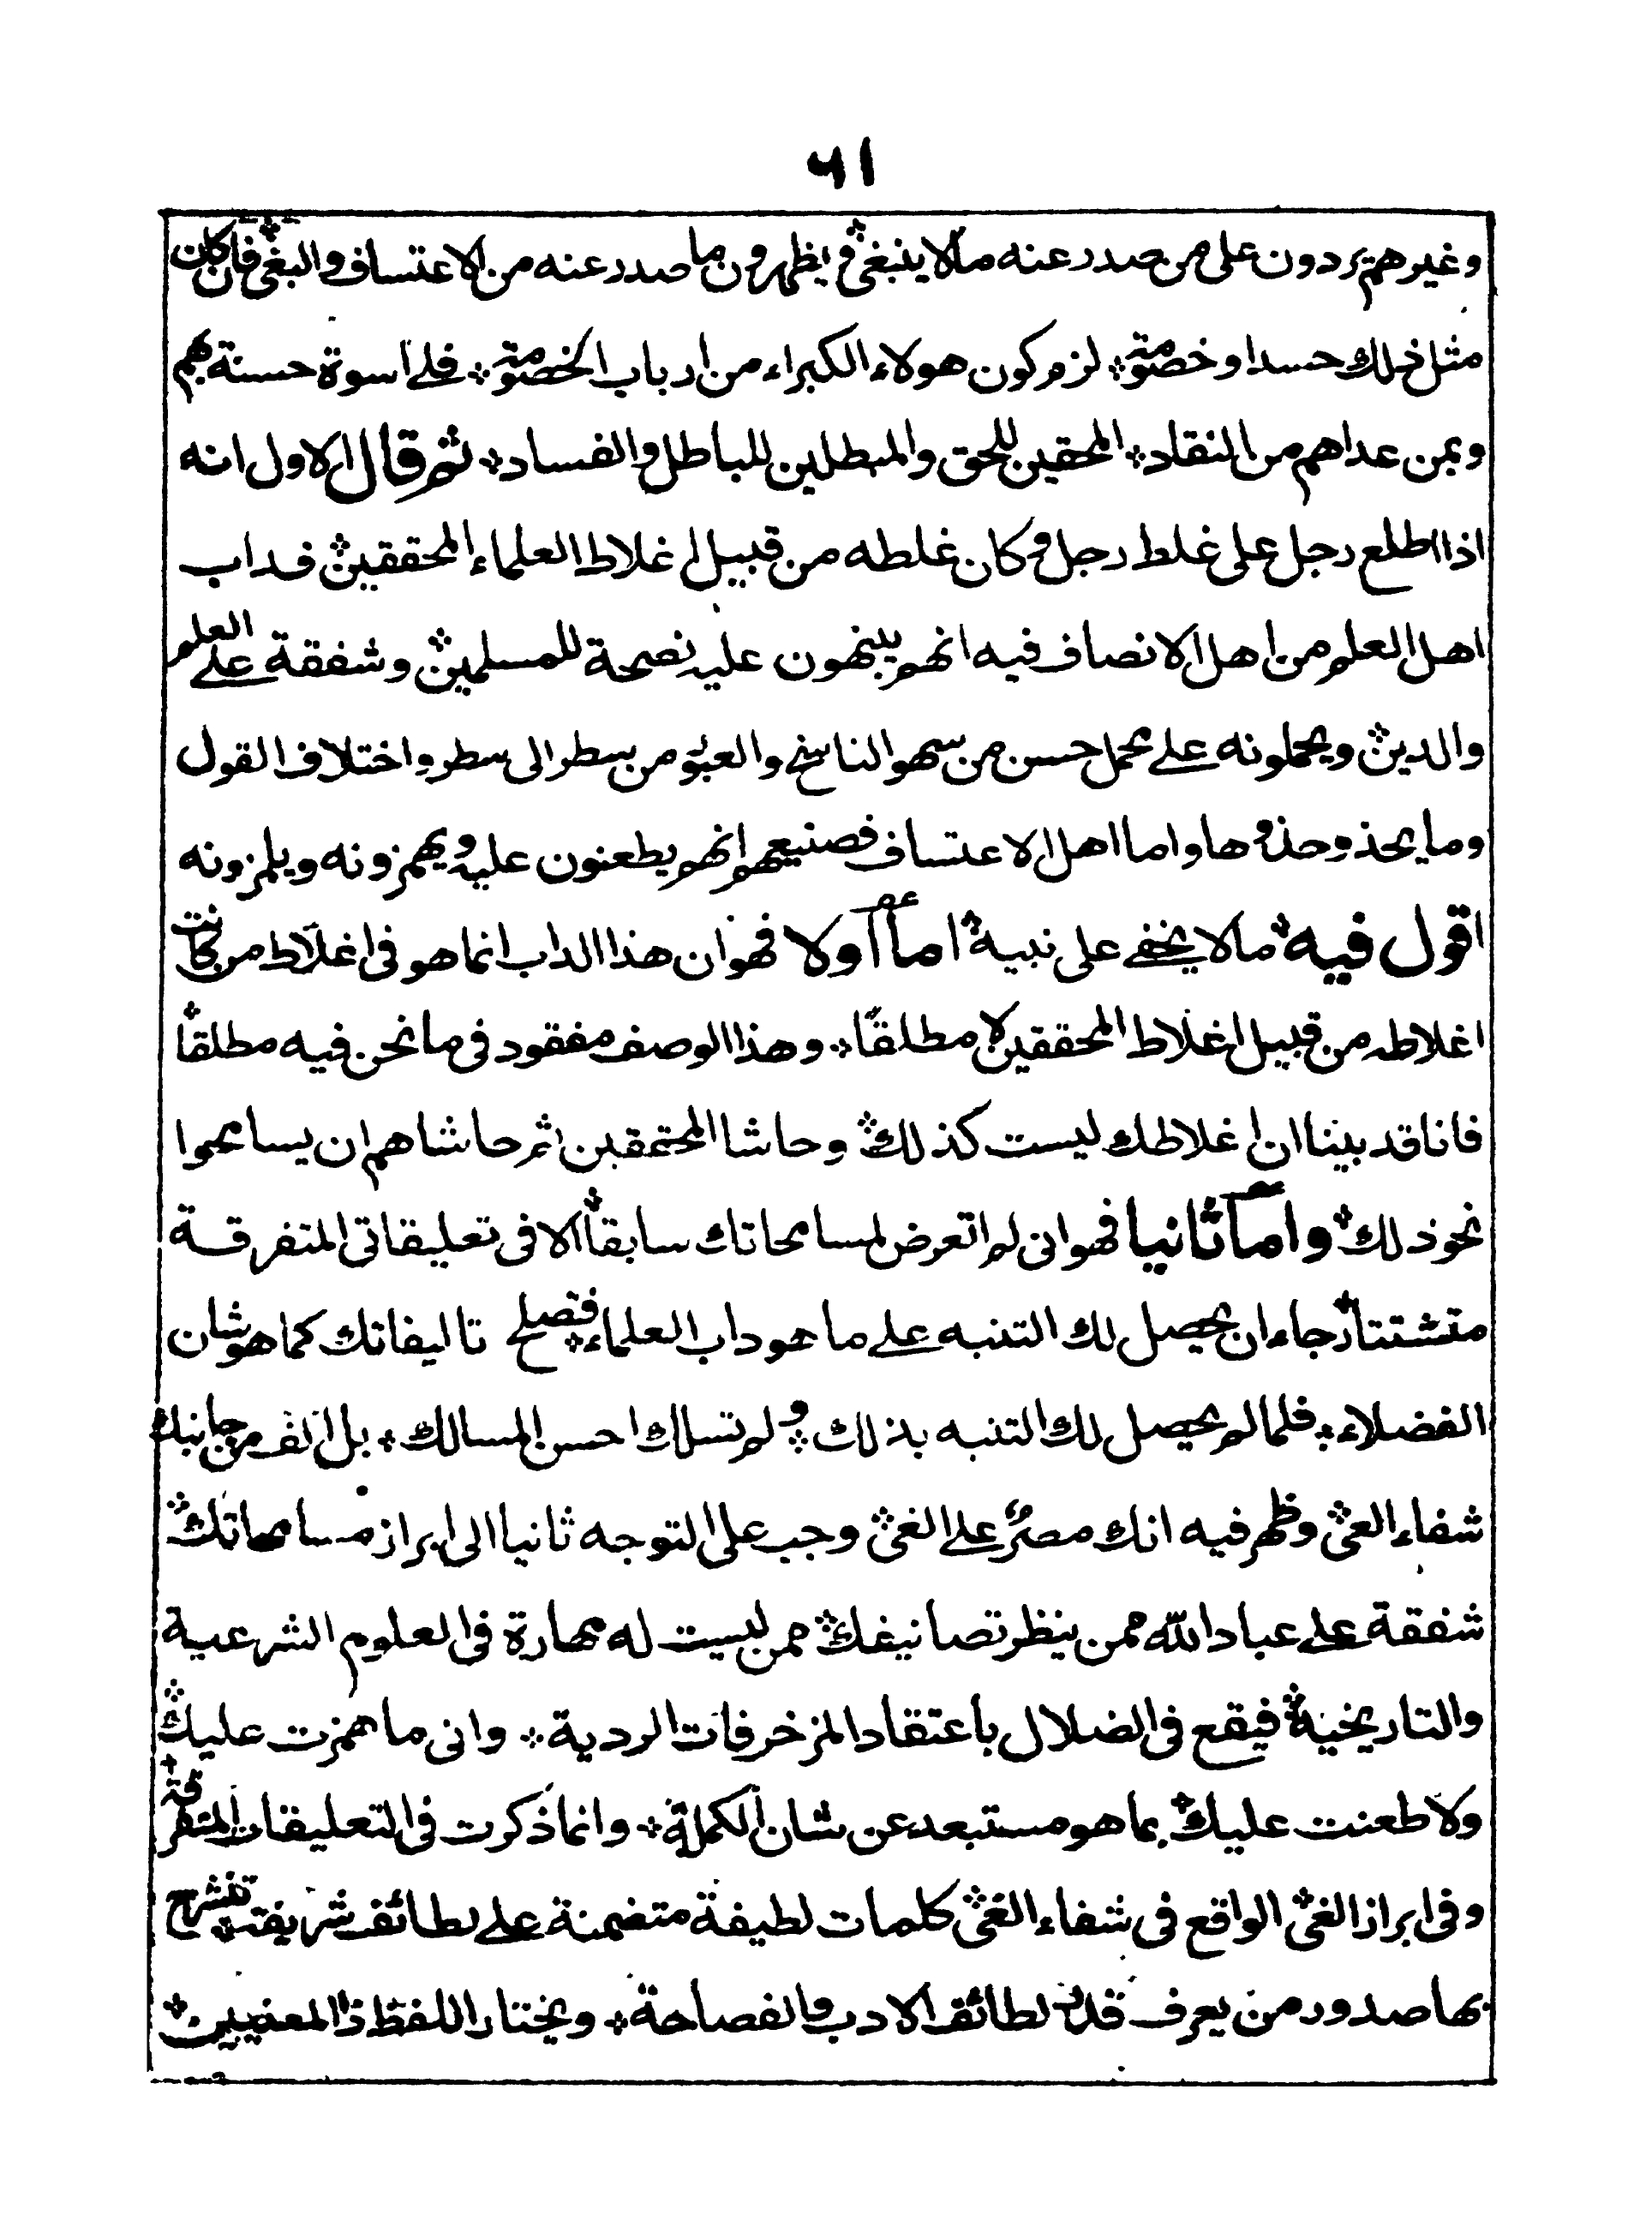 ٦١
وغيرهم يردون على من صدر عنه ما لا ينبغى ويظهرون ما صدر عنه من الاعتساف والبغى فان كان
مثل ذلك حسدا وخصومة لزم كون هولاء الكبراء من ارباب الخصومة فلى اسوة حسنة بهم
وبمن عداهم من النقاد المحقين للحق والمبطلين للباطل والفساد ثم قال الاول انه
اذا اطلع رجل على غلط رجل وكان غلطه من قبيل اغلاط العلماء المحققين فداب
اهل العلم من اهل الانصاف فيه انهم ينبهون عليه نصحة للمسلمين وشفقة على العلم
والدين ويحملونه على محمل حسن من سهو الناسخ والعبو من سطر الى سطر واختلاف القول
وما يحذو حذوها واما اهل الاعتساف فصنيعهم انهم يطعنون عليه ويهمزونه ويلمزونه
اقول فيه ما لا يخفى على نبيه اما اولا فهو ان هذا الداب انما هو فى اغلاط من كانت
اغلاطه من قبيل اغلاط المحققين لا مطلقا وهذا الوصف مفقود فى ما نحن فيه مطلقا
فانا قد بينا ان اغلاطك ليست كذلك وحاشا المحققين ثم حاشاهم ان يسامحوا
نحو ذلك واما ثانيا فهو انى لم اتعرض لمسامحاتك سابقا الا فى تعليقاتى المتفرقة
متشتتا رجاء ان يحصل لك التنبه على ما هو داب العلماء فتصلح تاليفاتك كما هو شان
الفضلاء فلما لم يحصل لك التنبه بذلك ولم تسلك احسن المسالك بل الف من جانبك
شفاء العى وظهر فيه انك مصر على الغى وجب على التوجه ثانيا الى ابراز مسامحاتك
شفقة على عباد الله ممن ينظر تصانيفك ممن ليست له مهارة فى العلوم الشرعية
والتاريخية فيقع فى الضلال باعتقاد المزخرفات الردية وانى ما همزت عليك
ولا طعنت عليك بما هو مستبعد عن شان الكملة وانما ذكرت فى التعليقات المتفرقة
وفى ابراز الغى الواقع فى شفاء العى كلمات لطيفة متضمنة على لطائف شريفة تنشرح
بها صدور من يعرف قدر لطائف الادب والفصاحة ويختار اللفظ ذا المعنيين